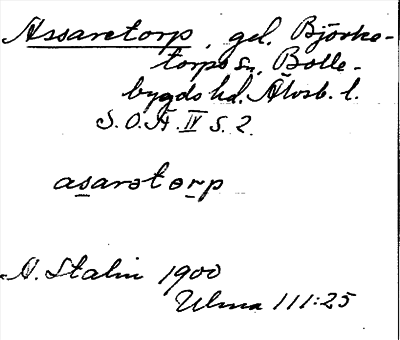 Assaretorp, gd. Björke-
torps sn. Bolle-
bygds hd. Älvsb. l.
S.O.Ä. IV S. 2.
asarətorp
A. Stalin 1900
Ulma 111:25